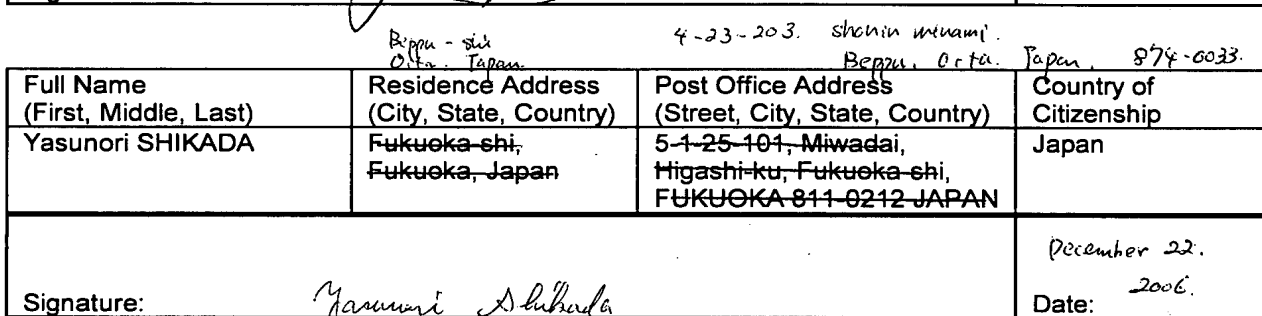 Beppu-shi
Oita. Japan.
4-23-203. shonin minami.
Beppu. Oita. Japan. 874-0033.
Full Name
(First, Middle, Last)
Residence Address
(City, State, Country)
Post Office Address
(Street, City, State, Country)
Country of
Citizenship
Yasunori SHIKADA
Fukuoka-shi,
Fukuoka, Japan
5-1-25-101, Miwadai,
Higashi-ku, Fukuoka-shi,
FUKUOKA 811-0212 JAPAN
Japan
Signature: Yasunori Shikada
December 22.
2006.
Date: